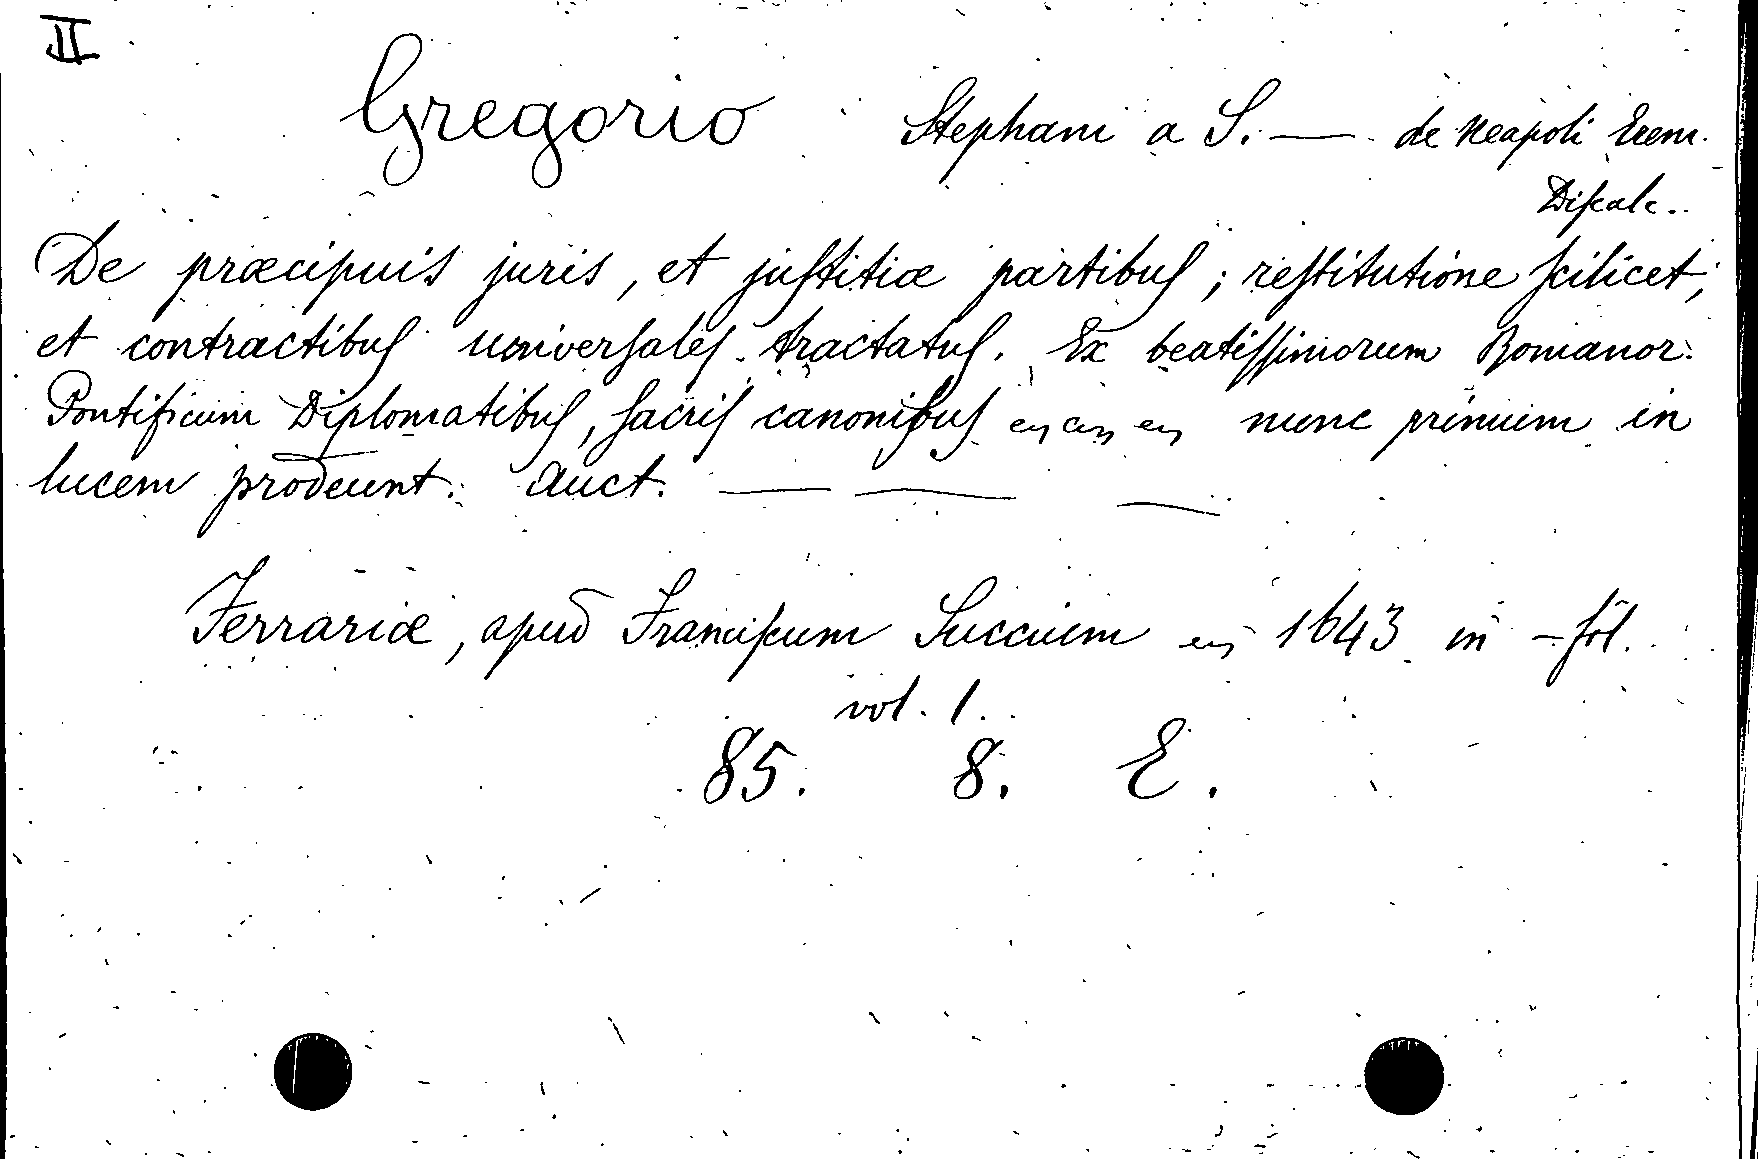 II
Gregorio Stephani a S. — de Neapoli Erem.
Diſcalc.
De præcipuis juris, et juſtitiæ partibuſ; reſtitutione ſcilicet,
et contractibuſ universaleſ tractatuſ. Ex beatiſſimorum Romanor.
Pontificum Diplomatibuſ, ſacriſ canonibuſ nunc primum in
lucem prodeunt. Auct. — — —
Ferrariæ, apud Franciſcum Succium 1643 in - fol.
vol. 1.
85. 8. E.